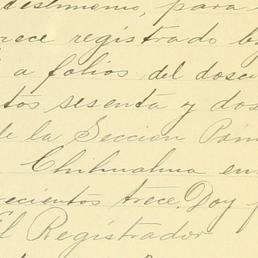 deslinenio, para
rece registrado b
a folios del dosci
tos sesenta y dos
de la Sección Prim
Chihuahua en
recientos trece. Doy f
El Registrador